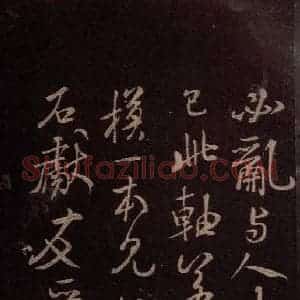 必亂与人
已此軸
模一本兄
石獻友
Shufaziliao.com